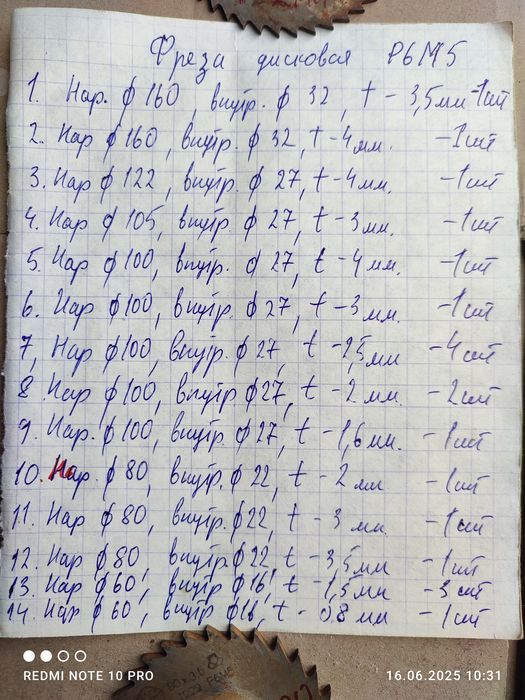 Фреза дисковая Р6М5
1. Нар. ф 160, внутр. ф 32, t - 3,5мм -1шт
2. Нар ф 160, внутр. ф 32, t - 4мм. -1шт
3. Нар ф 122, внутр. ф 27, t - 4мм. -1шт
4. Нар ф 105, внутр. ф 27, t - 3мм. -1шт
5. Нар ф 100, внутр. ф 27, t - 4мм. -1шт
6. Нар ф 100, внутр. ф 27, t - 3мм. -1шт
7, Нар ф 100, внутр. ф 27, t - 2,5мм -4шт
8. Нар ф 100, внутр ф 27, t - 2мм. -2шт
9. Нар. ф 100, внутр. ф 27, t - 1,6мм. -1шт
10. Нар. ф 80, внутр. ф 22, t - 2мм -1шт
11. Нар ф 80, внутр. ф 22, t - 3 мм. -1шт
12. Нар ф 80, внутр. ф 22, t - 3,5мм -1шт
13. Нар ф 60, внутр ф 16, t - 1,5мм -3шт
14. Нар ф 60, внутр ф 16, t - 08мм -1шт
Р6М5
REDMI NOTE 10 PRO
16.06.2025 10:31